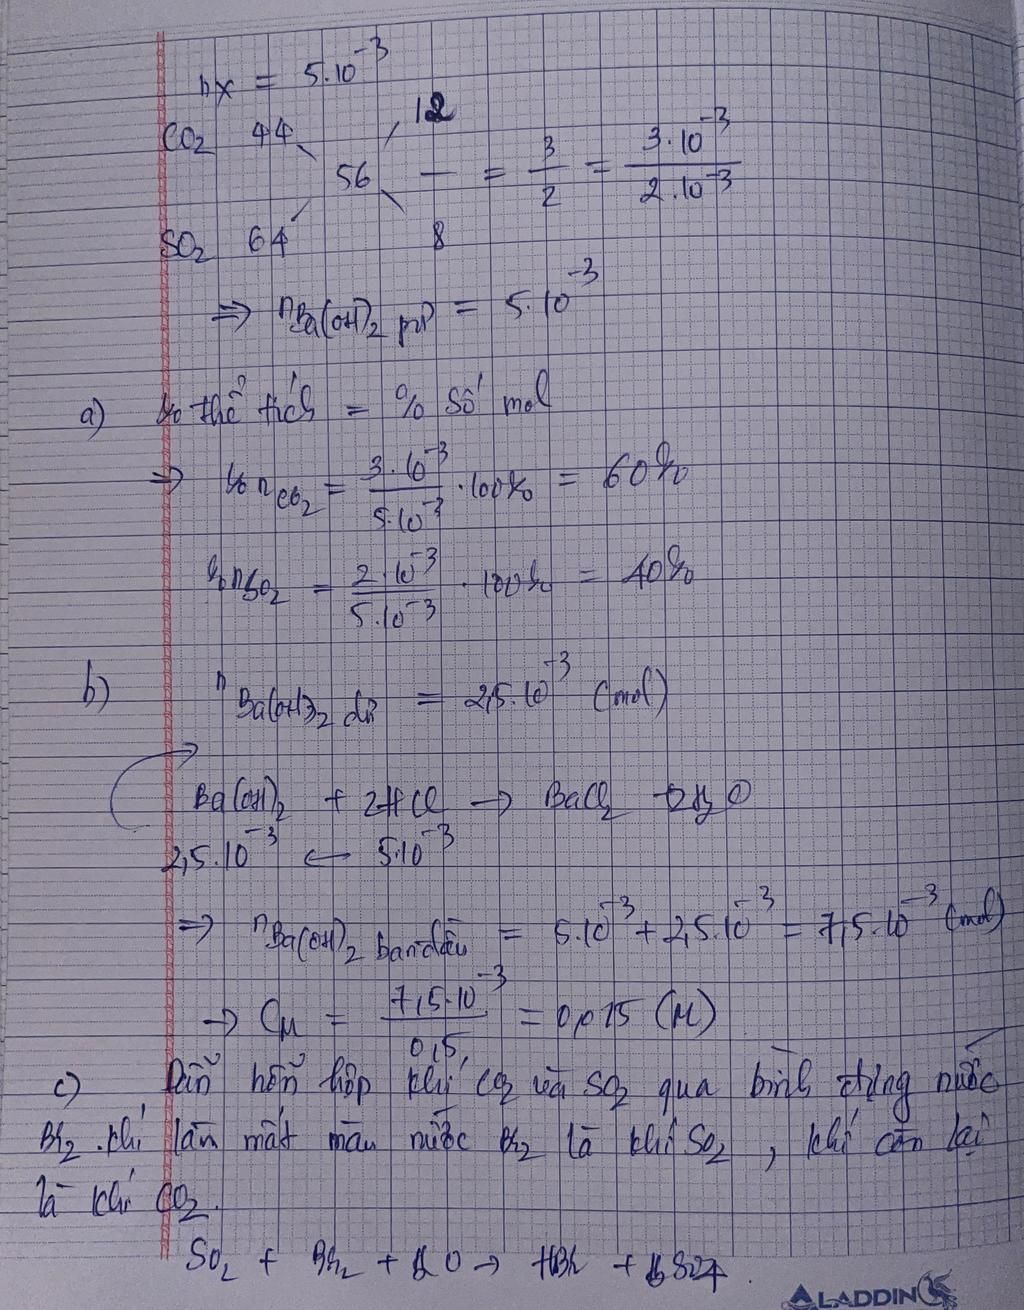 nX = 5.10⁻³
12
CO₂ 44
56 — = 3/2 = 3.10⁻³/2.10⁻³
SO₂ 64 8
=> nBa(OH)₂ pứ = 5.10⁻³
a) % thể tích = % số mol
=> %nCO₂ = 3.10⁻³/5.10⁻³ .100% = 60%
%nSO₂ = 2.10⁻³/5.10⁻³ .100% = 40%
b) nBa(OH)₂ dư = 2,5.10⁻³ (mol)
Ba(OH)₂ + 2HCl → BaCl₂ + 2H₂O
2,5.10⁻³ ← 5.10⁻³
=> nBa(OH)₂ ban đầu = 5.10⁻³ + 2,5.10⁻³ = 7,5.10⁻³ (mol)
→ CM = 7,5.10⁻³/0,5 = 0,015 (M)
c) Dẫn hỗn hợp khí CO₂ và SO₂ qua bình đựng nước
Br₂. khí làm mất màu nước Br₂ là khí SO₂, khí còn lại
là khí CO₂.
SO₂ + Br₂ + O → HBr + SO₄
ALADDIN